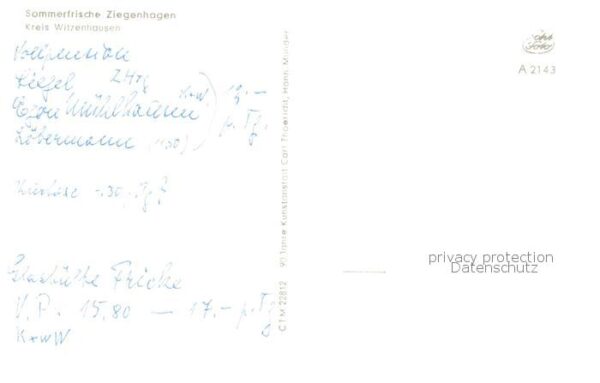 Sommerfrische Ziegenhagen
Kreis Witzenhausen
Vollpension
Siegel 2 Htg
Egon Mühlhausen K+W 19.-
Löbermann (1.50) p. Tg.
Kurtaxe -.30 p. Tg.
Glashütte Fricke
V. P. 15,80 — 17.- p. Tg
K+wW
CTM 22812 90 Jahre Kunstanstalt Carl Thoericht, Hann. Münden
foto
A 2143
privacy protection
Datenschutz